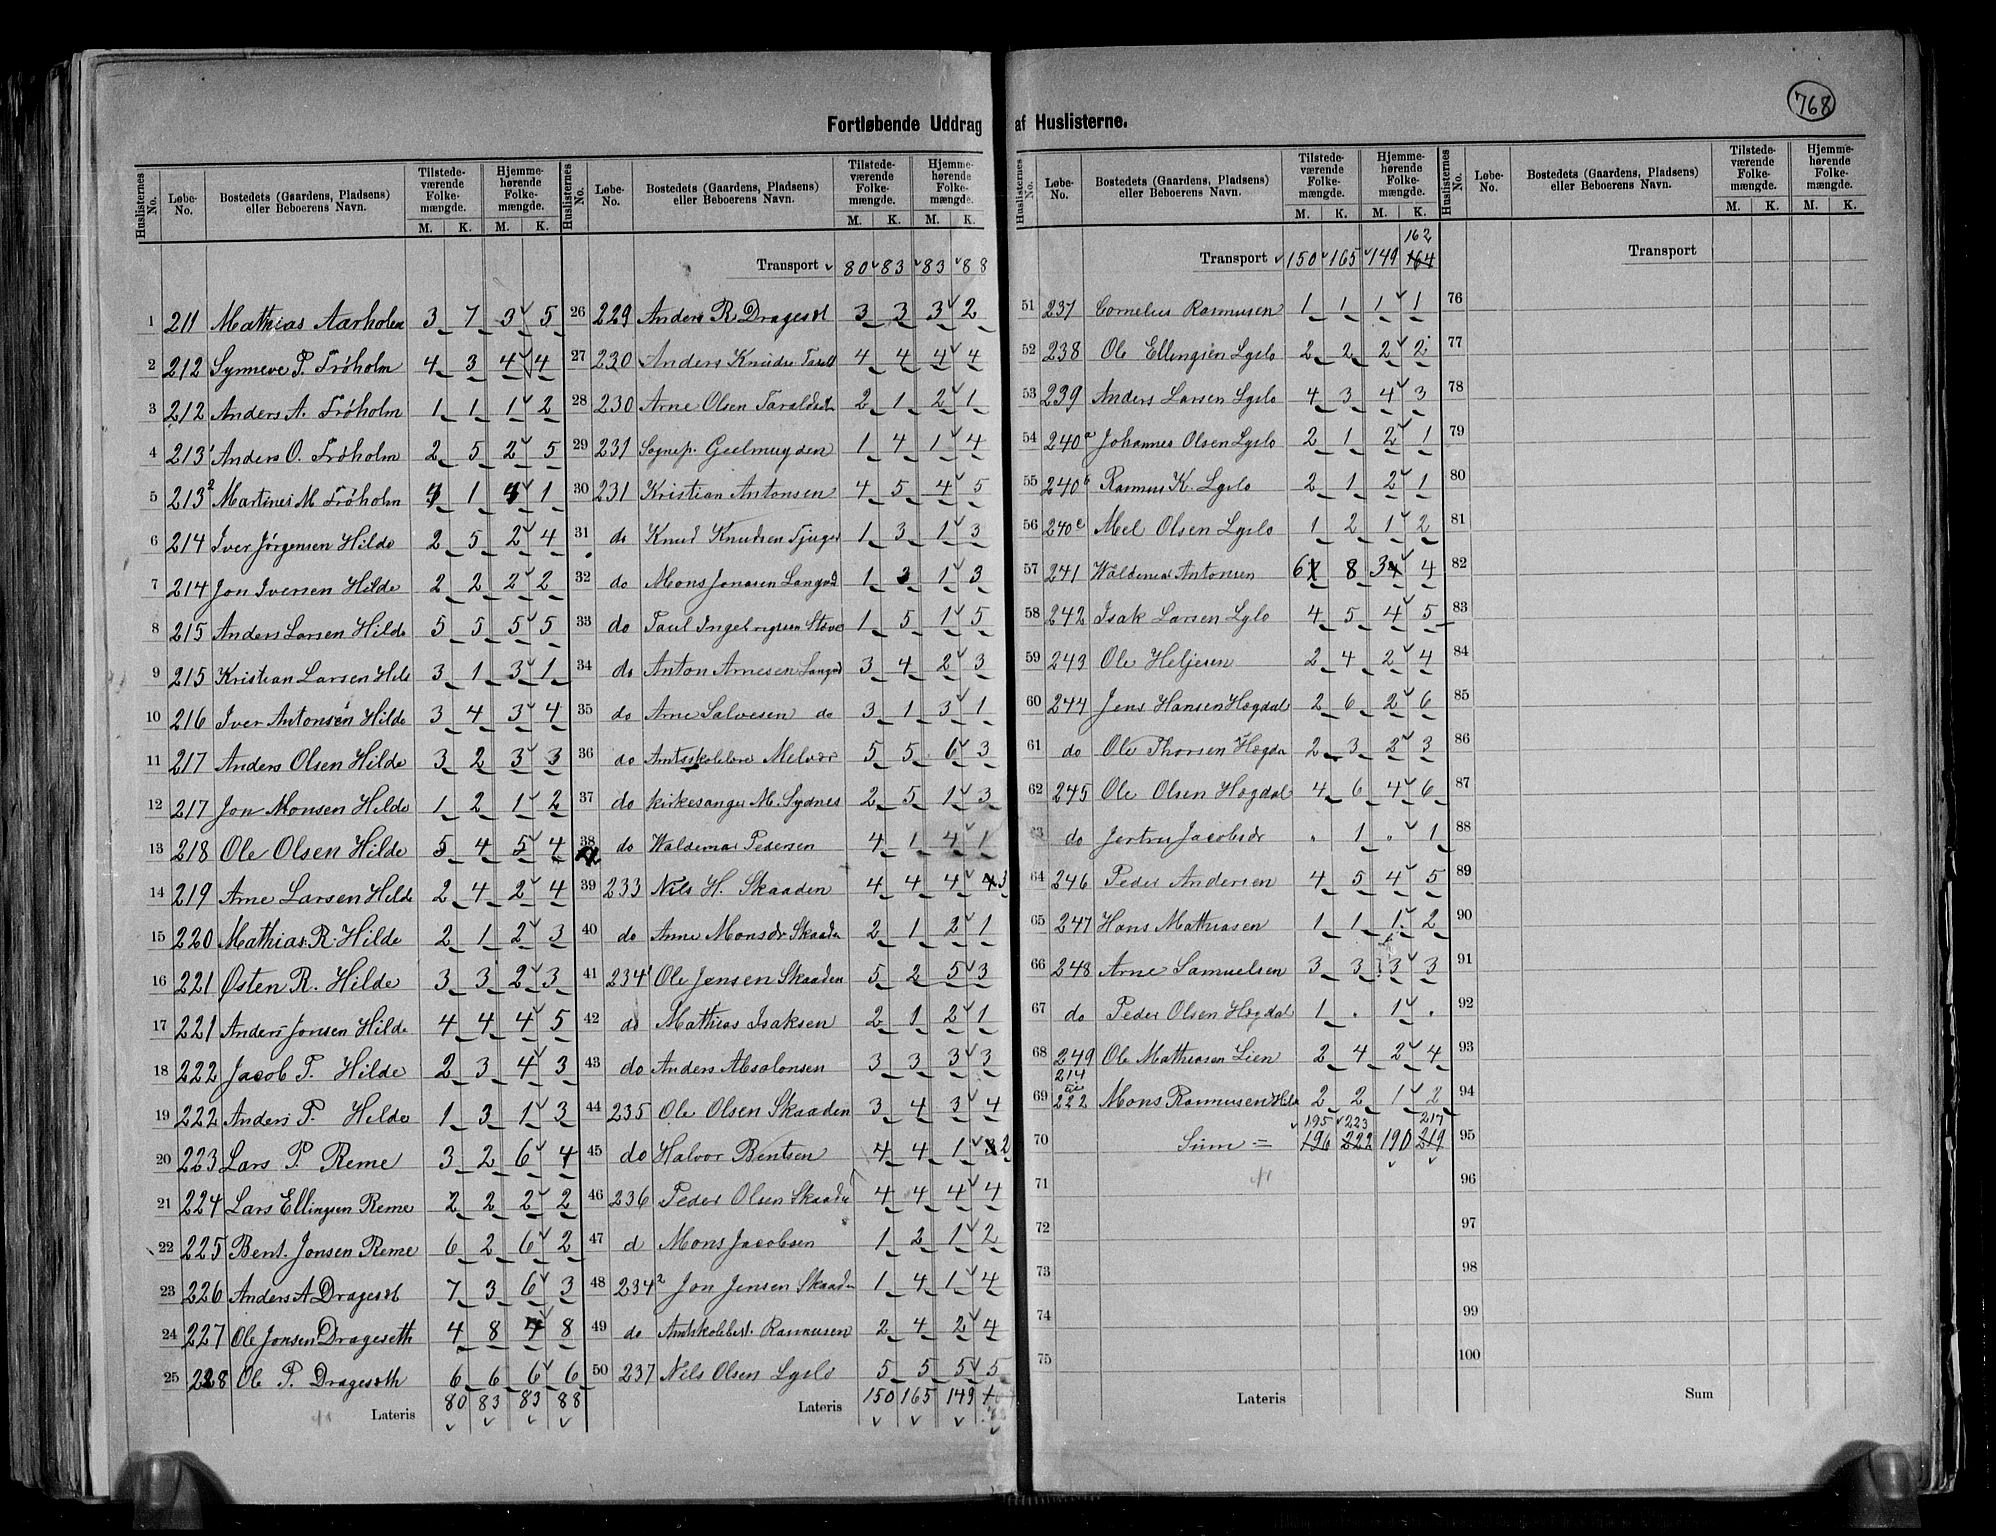 768
Fortløbende Uddrag af Huslisterne.
Huslisternes No. Løbe-No. Bostedets (Gaardens, Pladsens) eller Beboerens Navn. Tilstede-værende Folke-mængde. M. K. Hjemme-hørende Folke-mængde. M. K.
1 211 Mathias Aarholm 3 7 3 5
2 212 Synneve P. Frøholm 4 3 4 4
3 212 Anders A. Frøholm 1 1 1 2
4 213¹ Anders O. Frøholm 2 5 2 5
5 213² Martines M Frøholm 1 1
6 214 Iver Jørgensen Hilde 2 5 2 4
7 214 Jon Iversen Hilde 2 2 2 2
8 215 Anders Larsen Hilde 5 5 5 5
9 215 Kristian Larsen Hild 3 1 3 1
10 216 Iver Antonsen Hilde 3 4 3 4
11 217 Anders Olsen Hilde 3 2 3 3
12 217 Jon Monsen Hilde 1 2 1 2
13 218 Ole Olsen Hilde 5 4 5 4
14 219 Arne Larsen Hilde 2 4 2 4
15 220 Mathias R. Hilde 2 1 2 3
16 221 Østen R. Hilde 3 3 2 3
17 221 Anders Jonsen Hilde 4 4 4 5
18 222 Jacob P. Hilde 2 3 4 3
19 222 Anders P. Hilde 1 3 1 3
20 223 Lars P. Reme 3 2 6 4
21 224 Lars Ellingsen Reme 2 2 2 2
22 225 Bent. Jonsen Reme 6 2 6 2
23 226 Anders A Drageset 7 3 6 3
24 227 Ole Jonsen Drageseth 4 8 4 8
25 228 Ole P. Drageseth 6 6 6 6
Lateris 80 83 83 88
Huslisternes No. Løbe-No. Bostedets (Gaardens, Pladsens) eller Beboerens Navn. Tilstede-værende Folke-mængde. M. K. Hjemme-hørende Folke-mængde. M. K.
Transport 80 83 83 88
26 229 Anders R Drageset 3 3 3 2
27 230 Anders Knudsen 4 4 4 4
28 230 Arne Olsen Taraldset 2 1 2 1
29 231 Sognep. Geelmuyden 1 4 1 4
30 231 Kristian Antonsen 4 5 4 5
31 do Knud Knudsen 1 3 1 3
32 do Mons Jonasen 1 3 1 3
33 do Paul 1 5 1 5
34 do Anton Arnesen 3 4 2 3
35 do Arne Salvesen do 3 1 3 1
36 do Amtsskolelærer Melvær 5 5 6 3
37 do kirkesanger M. Sydnes 2 5 1 3
38 do Waldemar Pedersen 4 1 4 1
39 233 Nils H. Skaaden 4 4 4 3
40 do Anne Monsdr Skaaden 2 1 2 1
41 234¹ Ole Jensen Skaaden 5 2 5 3
42 do Mathias Isaksen 2 1 2 1
43 do Anders Absalonsen 3 3 3 3
44 235 Ole Olsen Skaaden 3 4 3 4
45 do Halvor Bentsen 4 4 1 2
46 236 Peder Olsen Skaaden 4 4 4 4
47 d Mons Jacobsen 1 2 1 2
48 234² Jon Jensen Skaaden 1 4 1 4
49 do Amtskolebest. Rasmusen 2 4 2 4
50 237 Nils Olsen Lyslo 5 5 5 5
Lateris 150 165 149
Huslisternes No. Løbe-No. Bostedets (Gaardens, Pladsens) eller Beboerens Navn. Tilstede-værende Folke-mængde. M. K. Hjemme-hørende Folke-mængde. M. K.
162
Transport 150 165 149 164
51 237 Cornelius Rasmusen 1 1 1 1
52 238 Ole Ellingsen Lyslo 2 2 2 2
53 239 Anders Larsen Lyslo 4 3 4 3
54 240a Johannes Olsen Lyslo 2 1 2 1
55 240b Rasmus K. Lyslo 2 1 2 1
56 240c Mel Olsen Lyslo 1 2 1 2
57 241 Waldemar Antonsen 6 8 3 4
58 242 Isak Larsen Lyslo 4 5 4 5
59 243 Ole Heljesen 2 4 2 4
60 244 Jens Hansen Hægdal 2 6 2 6
61 do Ole Thorsen Hægda 2 3 2 3
62 245 Ole Olsen Hægdal 4 6 4 6
63 do Jertru Jacobsdr " 1 " 1
64 246 Peder Andersen 4 5 4 5
65 247 Hans Mathiasen 1 1 1 2
66 248 Arne Samuelsen 3 3 3 3
67 do Peder Olsen Hægdal 1 . 1 .
68 249 Ole Mathiasen Lien 2 4 2 4
69 214 til 222 Mons Rasmusen Hilde 2 2 1 2
195 223 217
70 Sum = 196 222 190 219
71
72
73
74
75
Lateris
Huslisternes No. Løbe-No. Bostedets (Gaardens, Pladsens) eller Beboerens Navn. Tilstede-værende Folke-mængde. M. K. Hjemme-hørende Folke-mængde. M. K.
Transport
76
77
78
79
80
81
82
83
84
85
86
87
88
89
90
91
92
93
94
95
96
97
98
99
100
Sum